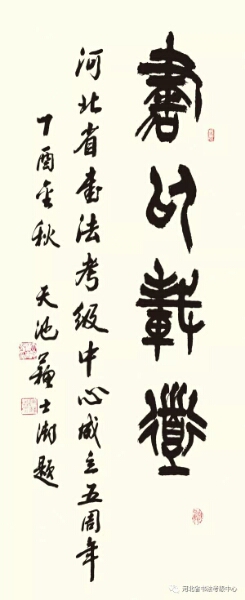 書以載道
河北省書法考級中心成立五周年
丁酉金秋 天池蘇士澍題
河北省书法考级中心